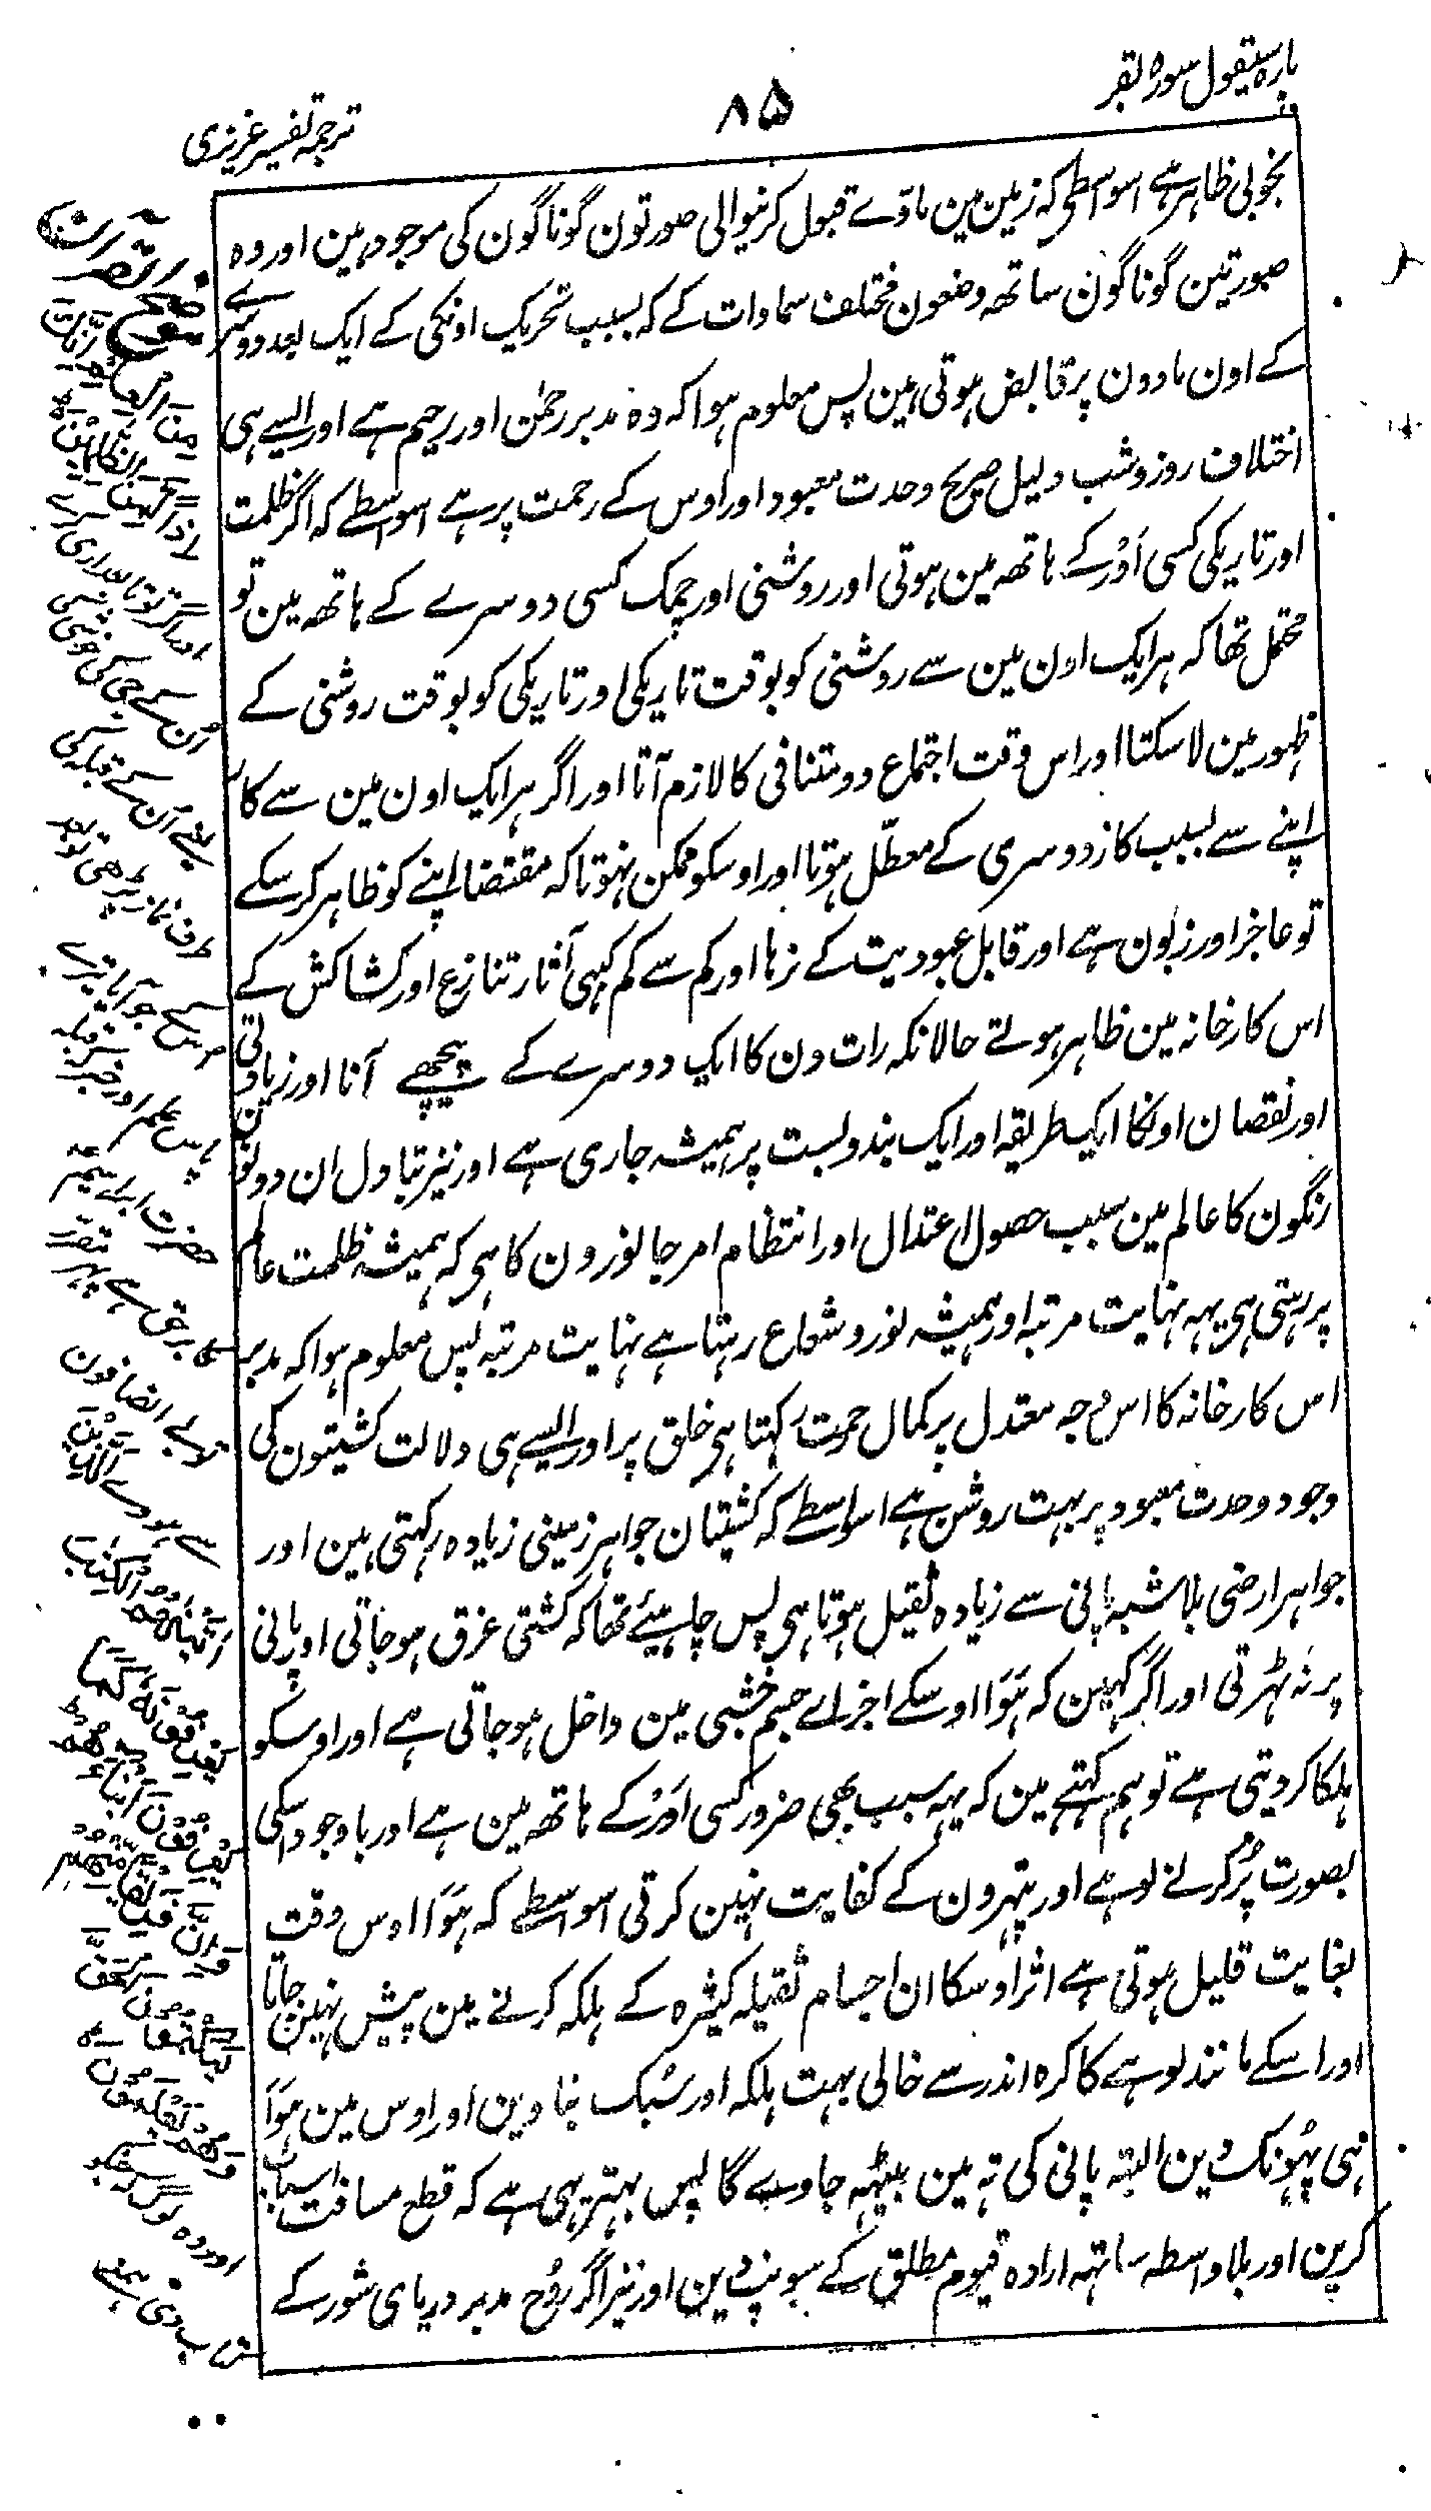 پارہ سیقول سورہ بقر
۸۵
ترجمہ تفسیر عزیزی
بخوبی ظاہر ہے اسواسطی کہ زمین مین مادّے قبول کرنیوالی صورتون گوناگون کی موجود ہین اور وہ
صورتین گوناگون ساتھ وضعون مختلف سماوات کے کہ بسبب تحریک اونکی کے ایک بعد دوسرے
کے اون مادون پر قابض ہوتی ہین پس معلوم ہوا کہ وہ مدبر رحمٰن اور رحیم ہے اور ایسے ہی
اختلاف روز و شب دلیل صریح وحدت معبود اور اوس کے رحمت پر ہے اسواسطے کہ اگر ظلمت
اور تاریکی کسی اَوْر کے ہاتھ مین ہوتی اور روشنی اور چمک کسی دوسرے کے ہاتھ مین تو
محتمل تھا کہ ہر ایک اون مین سے روشنی کو بوقت تاریکی اور تاریکی کو بوقت روشنی کے
ظہور مین لا سکتا اور اس وقت اجتماع دو متنافی کا لازم آتا اور اگر ہر ایک اون مین سے کار
اپنے سے بسبب کار دوسری کے معطّل ہوتا اور اوسکو ممکن نہوتا کہ مقتضا اپنے کو ظاہر کر سکے
تو عاجز اور زبون ہے اور قابل عبودیت کے نرہا اور کم سے کم کبہی آثار تنازع اور کشاکش کے
اس کارخانہ مین ظاہر ہوتے حالانکہ رات دن کا ایک دوسرے کے پیچھے آنا اور زیادتی
اور نقصان اونکا ایک طریقہ اور ایک بندوبست پر ہمیشہ جاری ہے اور نیز تبادل ان دونون
رنگون کا عالم مین سبب حصول اعتدال اور انتظام امر جانورون کا ہی کہ ہمیشہ ظلمت عالم
پر رہتی ہی یہہ نہایت مرتبہ اور ہمیشہ نور و شعاع رہتا ہے نہایت مرتبہ پس معلوم ہوا کہ مدبر
اس کارخانہ کا اس وجہ معتدل پر کمال رحمت رکہتا ہی خلق پر اور ایسے ہی دلالت کشیتون کی
وجود وحدت معبود پر بہت روشن ہے اسواسطے کہ کشیتان جواہر زمینی زیادہ رکہتی ہین اور
جواہر ارضی بلاشبہ پانی سے زیادہ ثقیل ہوتا ہی پس چاہیئے تھا کہ کشتی غرق ہو جاتی اور پانی
پر نہ ٹہرتی اور اگر کہین کہ ہَوَا اوسکے اجزاے جسم خشبی مین داخل ہو جاتی ہے اور اوسکو
ہلکا کر دیتی ہے تو ہم کہتے ہین کہ یہہ سبب بھی ضرور کسی اَوْر کے ہاتھ مین ہے اور باوجود اسکی
بصورت پُر کرنے لوہے اور پتہرون کے کفایت نہین کرتی اسواسطے کہ ہَوَا اوس وقت
بغایت قلیل ہوتی ہے اثر اوسکا ان اجسام ثقیلہ کثیرہ کے ہلکہ کرنے مین پیش نہین جاتا
اور اسکے مانند لوہے کا کرہ اندر سے خالی بہت ہلکہ اور سُبک بنا دین اور اوس مین ہَوَا
بہی پہُونک دین البتہ پانی کی تہ مین بیٹہہ جاوے گا پس بہتر یہی ہے کہ قطع مسافت اسباب
کرین اور بلا واسطہ ساتھہ ارادہ قیوم مطلق کے سونپ دین اور نیز اگر روُح مدبر دریای شور کے
اُن کے جی کی خوشی
یعنے اُن کے قبلہ کی
طرف نماز پڑھی تو بعد
اٰتَيْنٰهُمُ الْكِتٰبَ
يَعْرِفُوْنَهٗ كَمَا
يَعْرِفُوْنَ اَبْنَآءَهُمْ
وَاِنَّ فَرِيْقًا مِّنْهُمْ
لَيَكْتُمُوْنَ الْحَقَّ
وَهُمْ يَعْلَمُوْنَ
اور وہ لوگ کہ جنکو
کتاب دی ہمنے